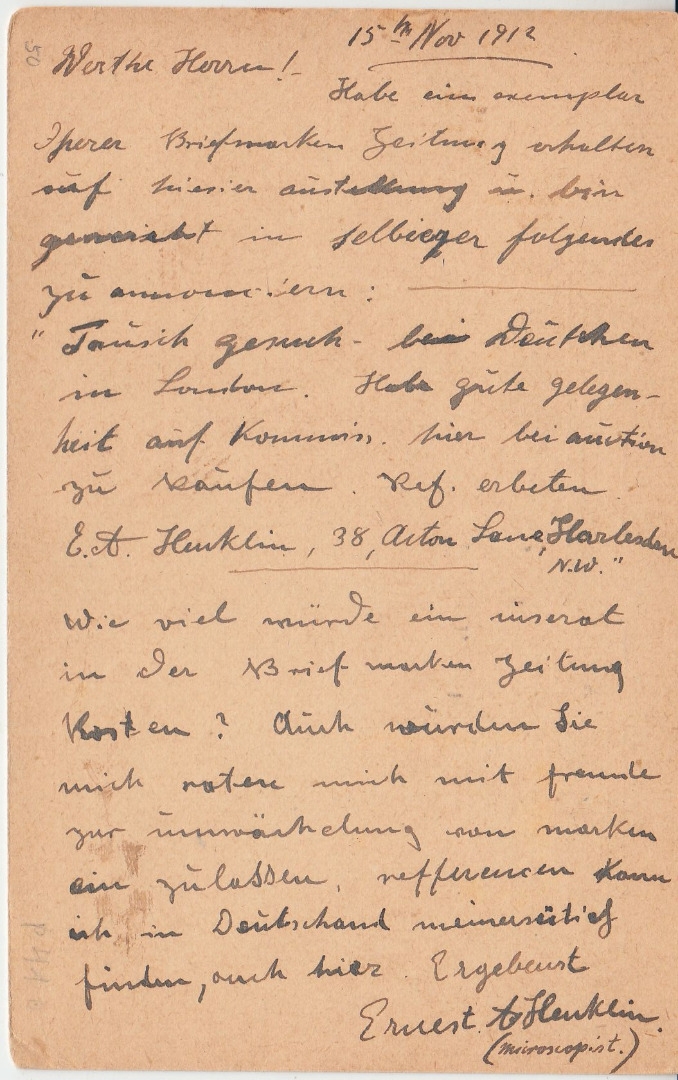 15th Nov 1912
Werthe Herren!
Habe ein exemplar
Ihrer Briefmarken Zeitung erhalten
auf hiesier austellung u. bin
geneicht in selbieger folgendes
zu annoncieren:
"Tausch gesuch - bei Deutchen
in London. Habe gute gelegen-
heit auf Kommiss. hier bei auction
zu kaufen. Ref. erbeten
E.A. Henklin, 38, Acton Lane, Harlesden
N.W."
Wie viel würde ein inserat
in der Briefmarken Zeitung
Kosten? Auch würden Sie
mich raten mich mit fremde
zur von marken
ein zulassen, refferencen Kann
ich in Deutschand
finden, auch hier. Ergebenst
Ernest A Henklin.
(microscopist.)
50